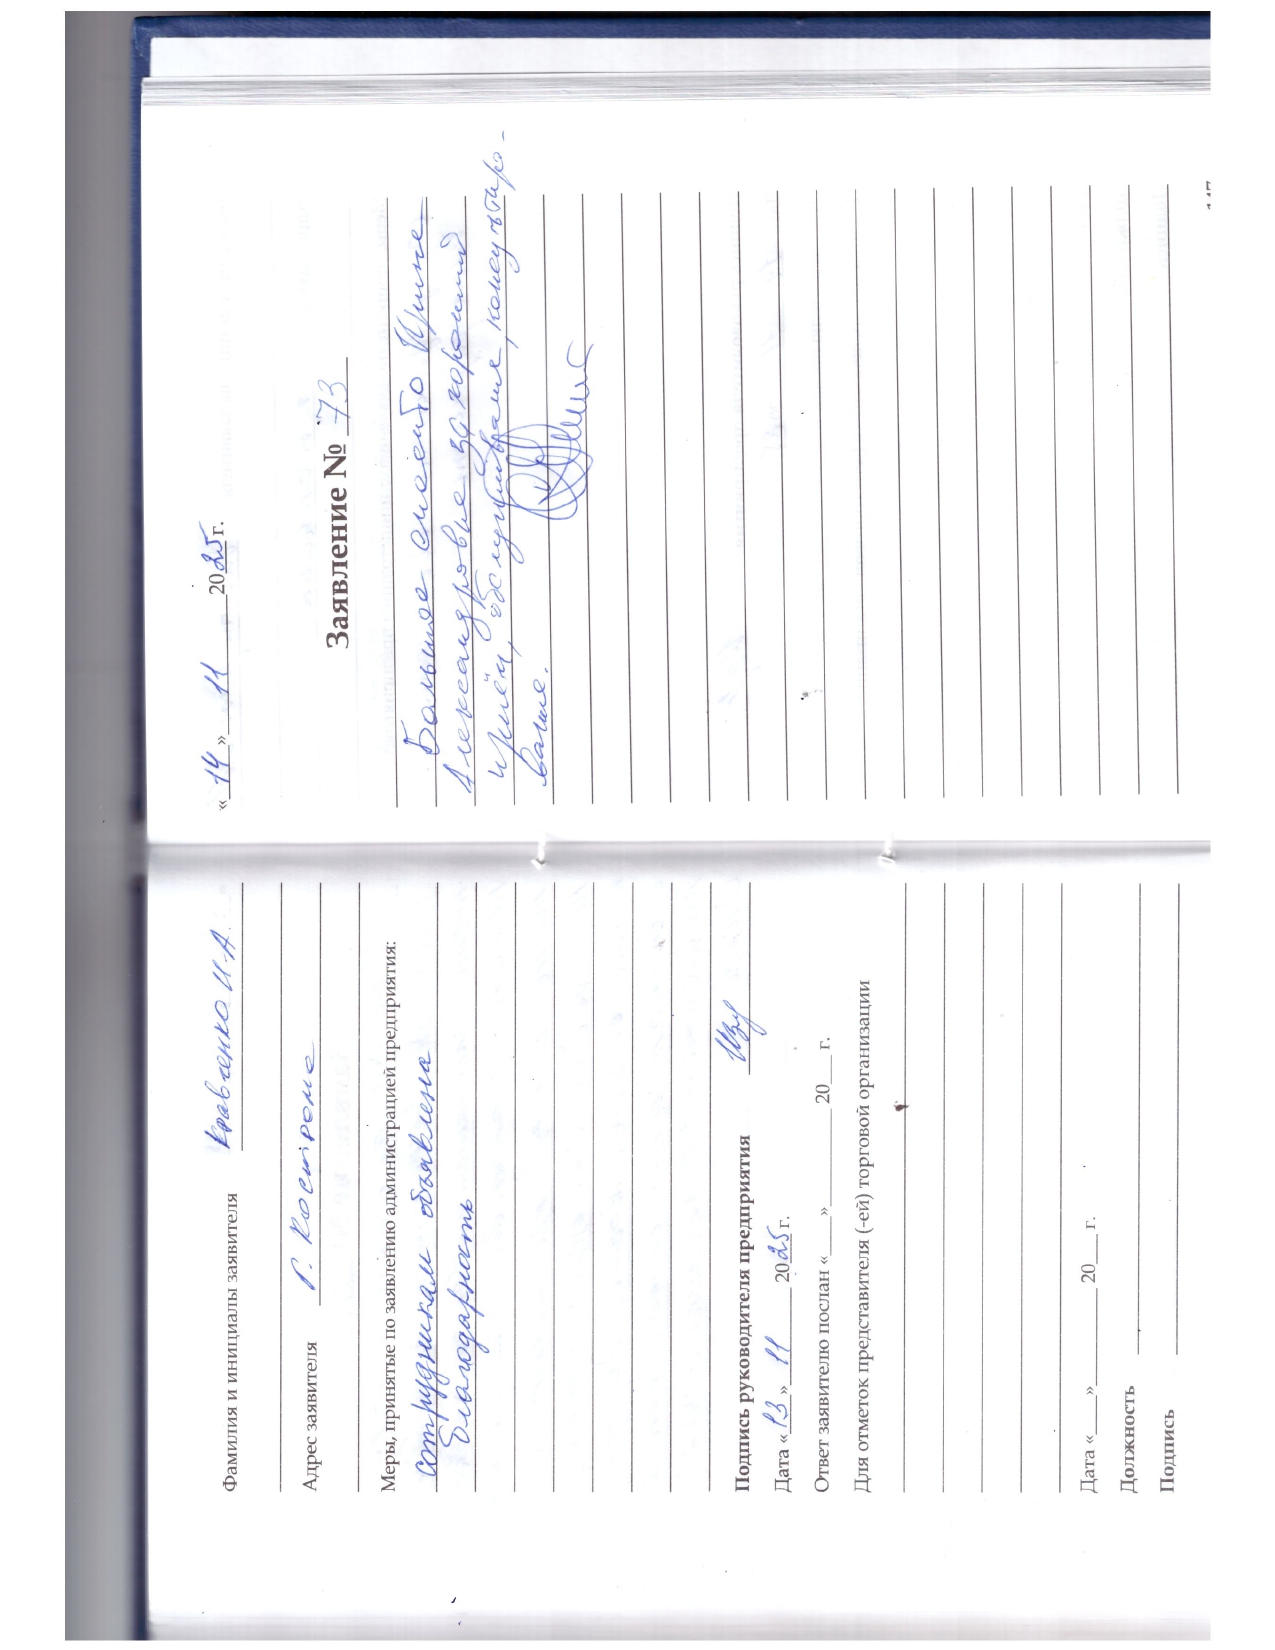 Фамилия и инициалы заявителя Кравченко И.А.
Адрес заявителя г. Кострома
Меры, принятые по заявлению администрацией предприятия:
сотрудникам объявлена
благодарность
Подпись руководителя предприятия
Дата «13» 11 2025 г.
Ответ заявителю послан «___» ________ 20___ г.
Для отметок представителя (-ей) торговой организации
Дата «___» ________ 20___ г.
Должность
Подпись
«14» 11 2025 г.
Заявление № 73
Большое спасибо Ирине
Александровне за хороший
приём, обслуживание, консультиро-
вание.